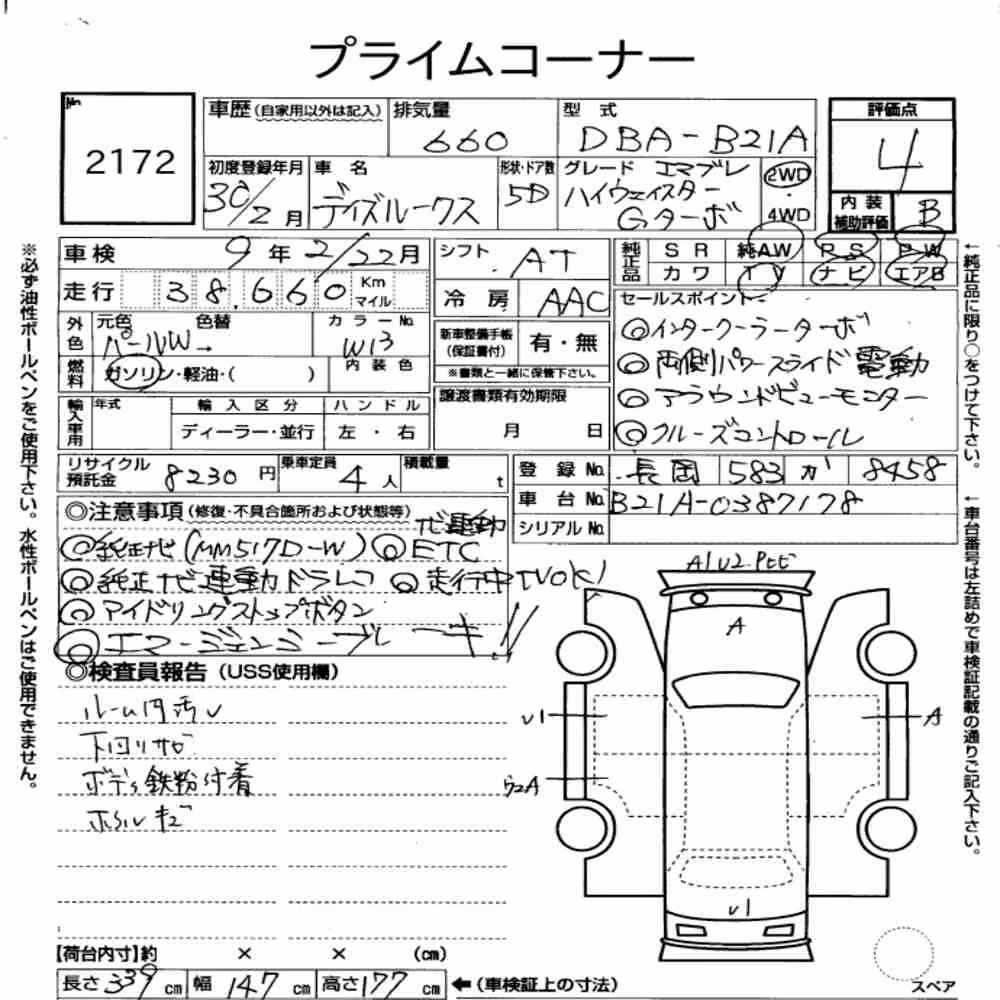 プライムコーナー
No
2172
車歴(自家用以外は記入)
排気量
660
型 式
DBA-B21A
評価点
4
初度登録年月
30/2月
車 名
デイズルークス
形状・ドア数
5D
グレード エマブレ
ハイウェイスター
Gターボ
2WD
・
4WD
内 装
補助評価
B
車検 9年2/22月
シフト AT
純正品
SR 純AW PS PW
カワ TV ナビ エアB
走行 38.660 Km
マイル
冷 房 AAC
セールスポイント
◎インタークーラーターボ
◎両側パワースライド電動
◎アラウンドビューモニター
◎クルーズコントロール
外色
元色 色替
パールW→
カラーNo.
W13
新車整備手帳
(保証書付)
有・無
※書類と一緒に保管下さい。
燃料
ガソリン・軽油・( )
内 装 色
譲渡書類有効期限
月 日
輸入車用
年式
輸 入 区 分
ディーラー・並行
ハ ン ド ル
左 ・ 右
リサイクル
預託金
8230円
乗車定員
4人
積載量
t
登 録 No. 長岡 583 か 8458
車 台 No. B21A-0387178
シリアル No.
◎注意事項(修復・不具合箇所および状態等)
ナビ連動
◎純正ナビ(MM517D-W) ◎ETC
◎純正ナビ連動ドラレコ ◎走行中TVOK!
◎アイドリングストップボタン
◎エマージェンシーブレーキ!!
◎検査員報告(USS使用欄)
ルーム内汚レ
下回リサビ
ボディ鉄粉付着
ホイルキズ
A1U2
A
U1
A
U2A
U1
【荷台内寸】約 × × (cm)
長さ339cm 幅147cm 高さ177cm ←(車検証上の寸法)
スペア
※必ず油性ボールペンをご使用下さい。水性ボールペンはご使用できません。
←純正品に限り○をつけて下さい。
←車台番号は左詰めで車検証記載の通りご記入下さい。